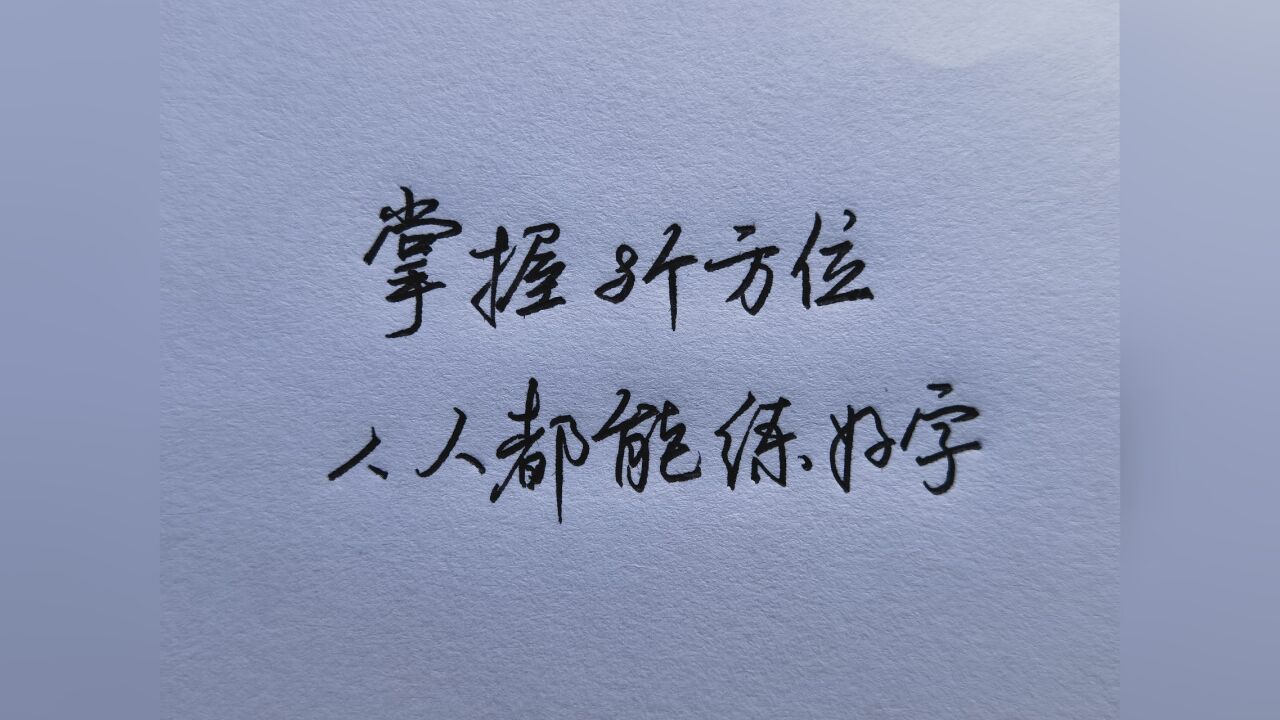 掌握8个方位
人人都能练好字